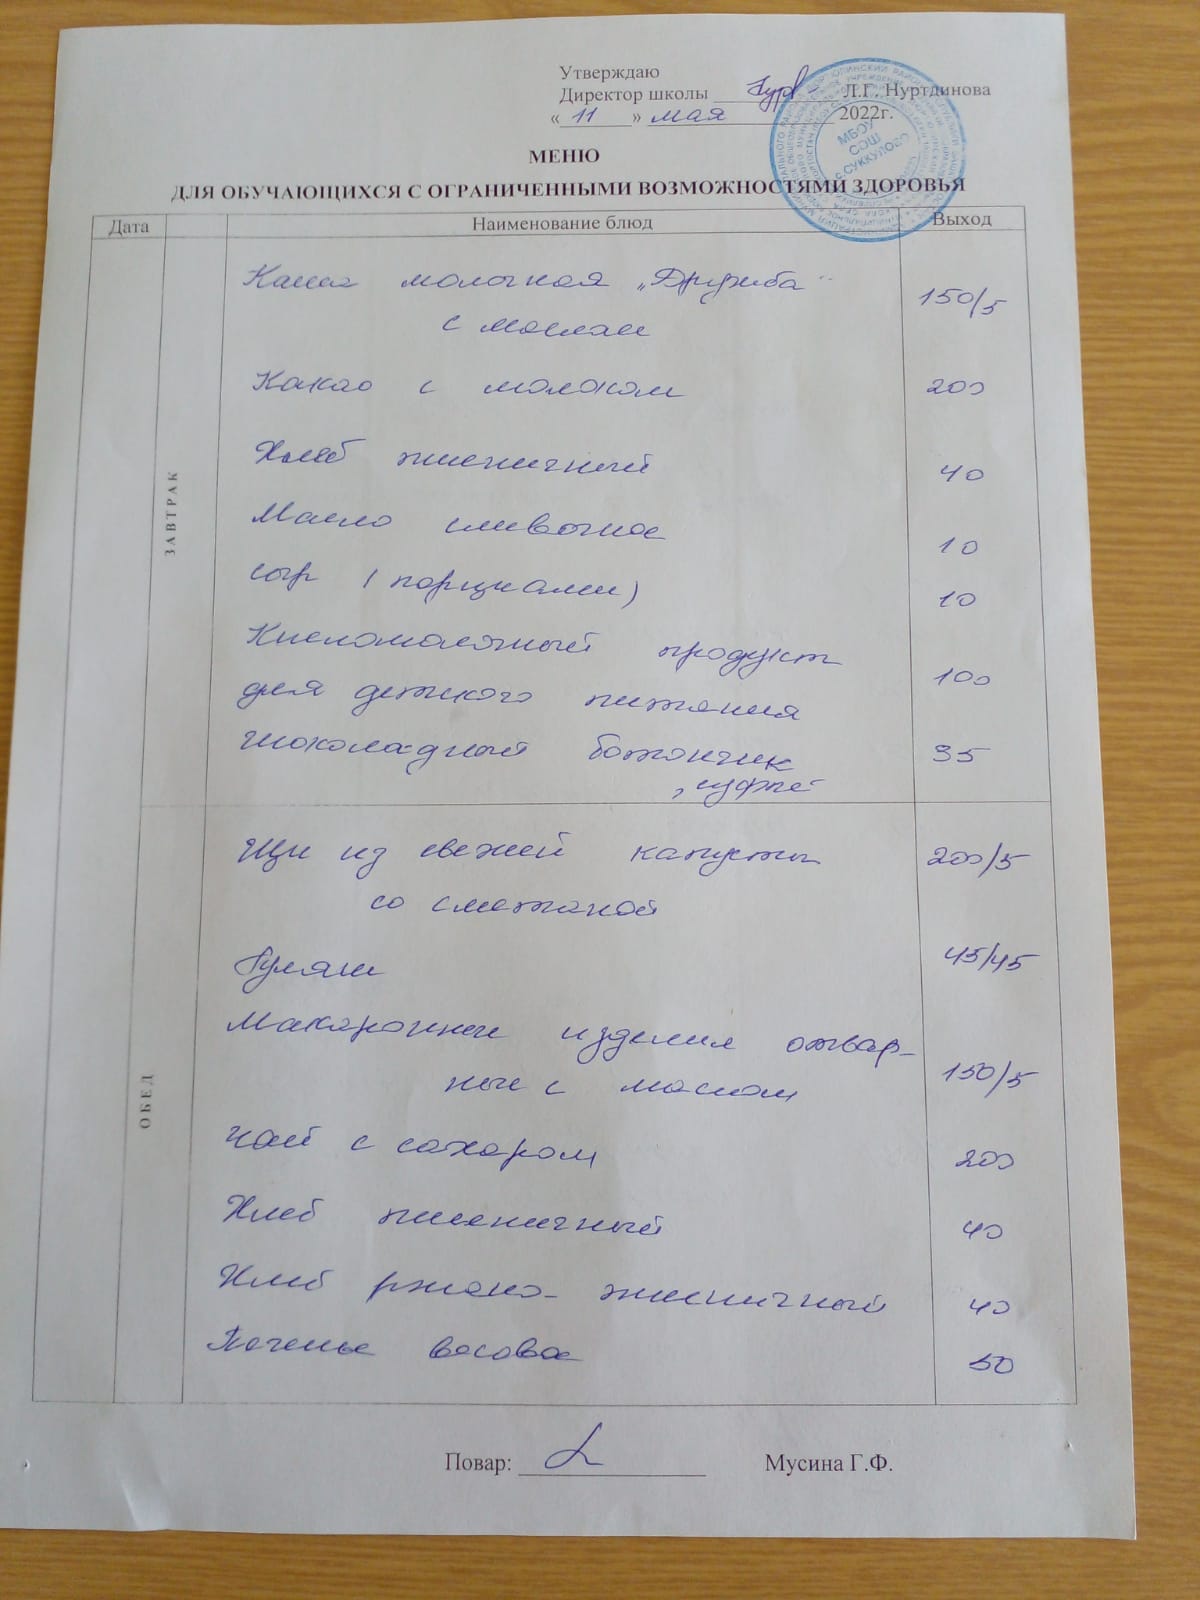 Утверждаю
Директор школы Л.Г. Нуртдинова
« 11 » мая 2022г.
МБОУ
СОШ
с.СУККУЛОВО
МЕНЮ
ДЛЯ ОБУЧАЮЩИХСЯ С ОГРАНИЧЕННЫМИ ВОЗМОЖНОСТЯМИ ЗДОРОВЬЯ
Дата Наименование блюд Выход
ЗАВТРАК
Каша молочная „Дружба" 150/5
с маслом
Какао с молоком 200
Хлеб пшеничный 40
Масло сливочное 10
сыр (порциями) 10
Кисломолочный продукт 100
для детского питания
шоколадный батончик 35
суфле
ОБЕД
Щи из свежей капусты 200/5
со сметаной
Гуляш 45/45
Макаронные изделия отвар-
ные с маслом 150/5
Чай с сахаром 200
Хлеб пшеничный 40
Хлеб ржано-пшеничный 40
Печенье весовое 50
Повар: Мусина Г.Ф.